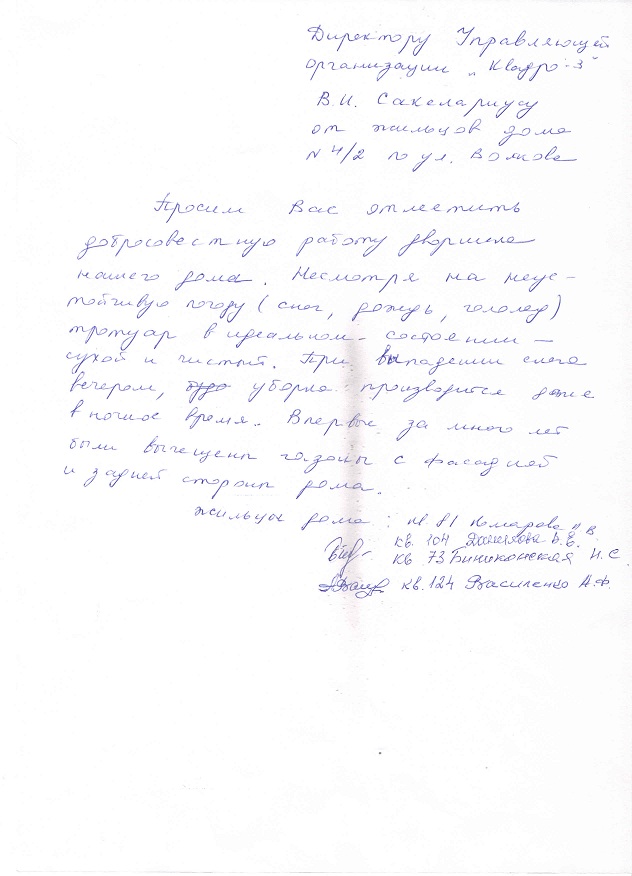 Директору Управляющей
организации „Квадро-3"
В.И. Сакелариусу
от жильцов дома
№ 4/2 по ул. Волкова
Просим Вас отметить
добросовестную работу дворника
нашего дома. Несмотря на неус-
тойчивую погоду (снег, дождь, гололед)
тротуар в идеальном состоянии -
сухой и чистый. При выпадении снега
вечером, уборка производится даже
в ночное время. Впервые за много лет
были вычещены газоны с фасадной
и задней стороны дома.
Жильцы дома: кв 81 Комарова
кв. 104
кв 73 Биниконская Н. С
кв. 124 Василенко А.Ф.